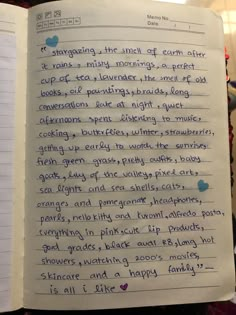 Memo No.
Date
" stargazing, the smell of earth after
it rains, misty mornings, a perfect
cup of tea, lavender, the smell of old
books, oil paintings, braids, long
conversations late at night, quiet
afternoons spent listening to music,
cooking, butterflies, winter, strawberries,
getting up early to watch the sunrise,
fresh green grass, pretty outfits, baby
goats, lily of the valley, pixel art,
sea lights and sea shells, cats,
oranges and pomegranate, headphones,
pearls, hello kitty and kuromi, alfredo pasta,
everything in pink, cute lip products,
good grades, black avat #8, long hot
showers, watching 2000's movies,
skincare and a happy family "
is all i like